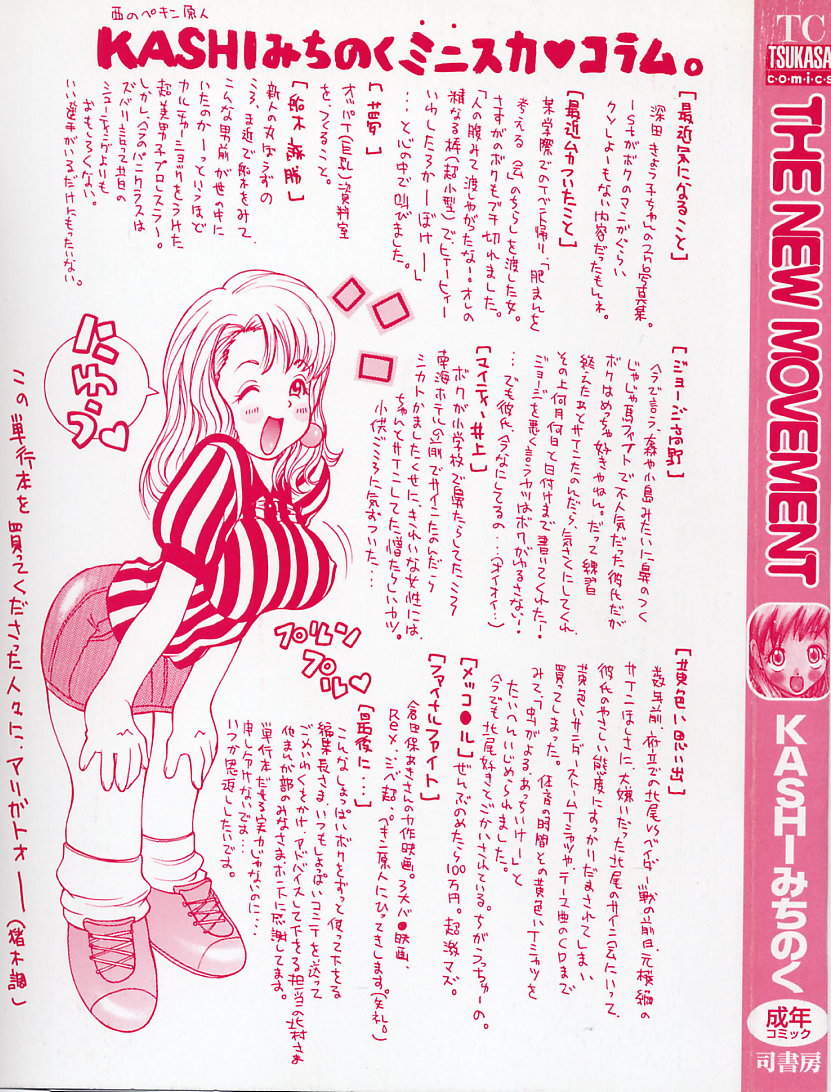 西のペキン原人
KASHIみちのくミニスカ♥コラム。
[最近気になること]
深田きょう子ちゃんの2nd写真集。
1stがボクのマンガぐらい
クソしょーもない内容だったもんネ。
[最近ムカついたこと]
某学際でのイベント帰り、「肥まんを
考える会」のちらしを渡した女。
さすがのボクもブチ切れました。
「人の腹みて渡しやがたな!オレの
粗なる棒(超小型)で、ヒィーヒィー
いわしたろかーぼけー」
…と心の中で叫びました。
[昔夢]
オッパイ(巨乳)資料室
を、つくること。
[船木誠勝]
新人の丸ぼうずの
ころ、ま近で船木をみて、
こんな男前が世の中に
いたのかーっというほど
カルチャーショックをうけた
超美男子プロレスラー。
しかし、今のパンクラスは
ズバリ言って昔の
シューティングよりも
おもしろくない。
いい選手がいるだけにもったいない。
[ジョージ高野]
今で言う、森や小島みたいに鼻のつく
じゃじゃ馬ファイトで不人気だった彼氏だが
ボクはめっちゃ好きやねん。だって練習
終えたあとサインたのんだら、気さくにしてくれ、
その上何月何日と日付けまで書いてくれたー。
ジョージを悪く言うヤツはボクがゆるさない!
…でも彼氏、今なにしてるの…(オイオイ…)
[マイティ井上]
ボクが小学校で鼻たらしてたころ
南海ホテル(何)前でサインたのんだら
シカトかましたくせに、きれいな女性には、
ちゃんとサインしてた憎たらしいヤツ。
小供ごころに気ずついた…
[黄色い思い出]
数年前、府立での北尾VSベイダー戦の前日、元横綱の
サインほしさに、大嫌いだった北尾のサイン会にいって、
彼氏のやさしい態度にすっかりだまされてしまい
黄色いサンダーストームTシャツやテーマ曲のCDまで
買ってしまった。体育の時間その黄色いTシャツを
みて、「虫がよる、あっちいけー」と
たいへんいじめられました。
今でも北尾好きとごかいされている。ちがうっちゅーの。
[メッコ●ル]ぜんぶのめたら100万円。超激マズ。
[ファイナルファイト]
倉田保あきさんの力作映画。3大バ●映画、
Rex、シベ超、ペキン原人にひってきします。(失礼。)
[最後に…]
こんなしょっぱいボクをずっと使って下さる
編集長さま、いつもしょっぱいコンテを送って
ごめいわくをかけ、アドバイスして下さる担当の北村さま
他まんが部のみなさま、ホントに感謝してます。
単行本だせる実力じゃないのに…
申しわけないです…
いつか恩返ししたいです。
にゅう♡
プルルン
プル♡
この単行本を買ってくださった人々に、アリガトォー(猪木調)
TC
TSUKASA
comics
THE NEW MOVEMENT
KASHIみちのく
成年
コミック
司書房